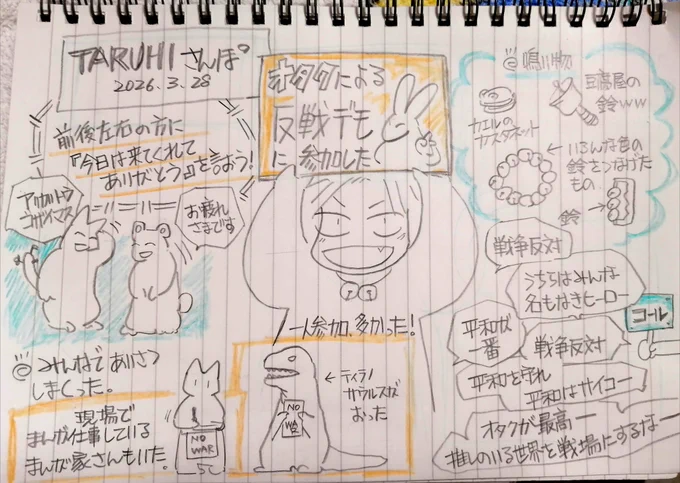 TARUHIさんぽ
2026.3.28
オタクによる
反戦デモ
に参加した
前後左右の方に
『今日は来てくれて
ありがとう』を言おう!
アリガトウ
ゴザイマス
お疲れ
さまです
◎みんなであいさつ
しまくった。
現場で
まんが仕事している
まんが家さんもいた。
NO
WAR
一人参加、多かった!
←ティラノ
サウルスが
おった
NO
WAR
◎鳴り物
カエルの
カスタネット
豆腐屋の
鈴ww
←いろんな色の
鈴をつなげた
もの
鈴→
戦争反対
うちらはみんな
名もなきヒーロー
コール
平和が
一番
戦争反対
平和を守れ
平和はサイコー
オタクが最高ー
推しのいる世界を戦場にするなー